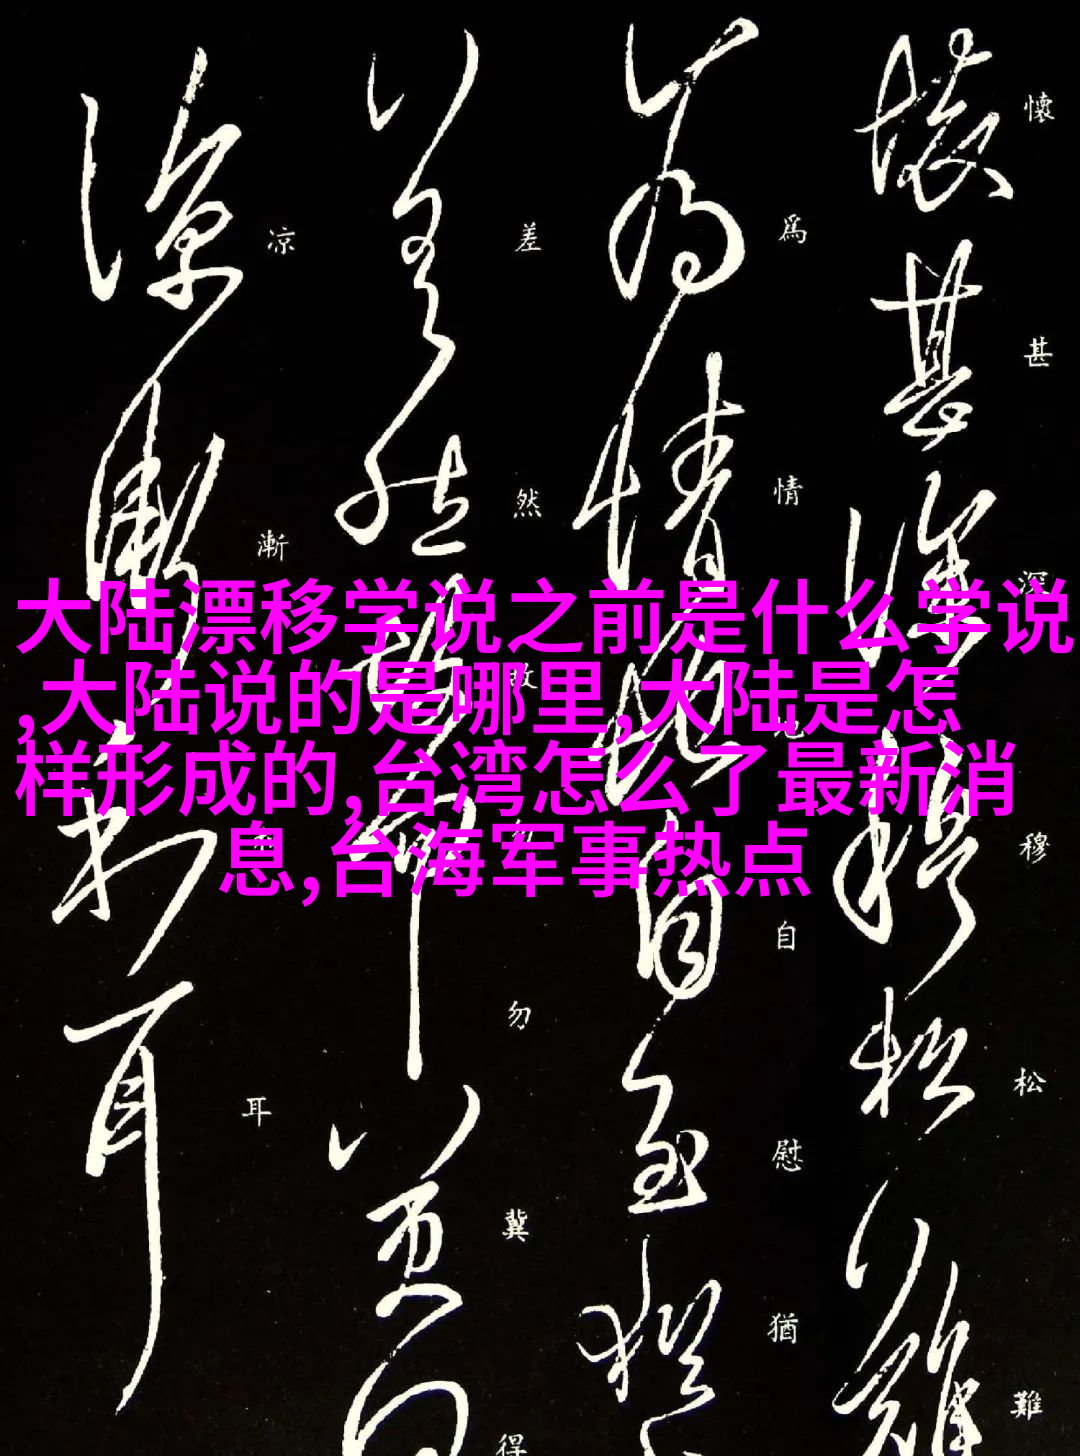 懷甚深穆松難
爲情地自慰猶
差然勿冀得
凉漸耳
大陆漂移学说之前是什么学说
,大陆说的是哪里,大陆是怎
样形成的,台湾怎么了最新消
息,台海军事热点